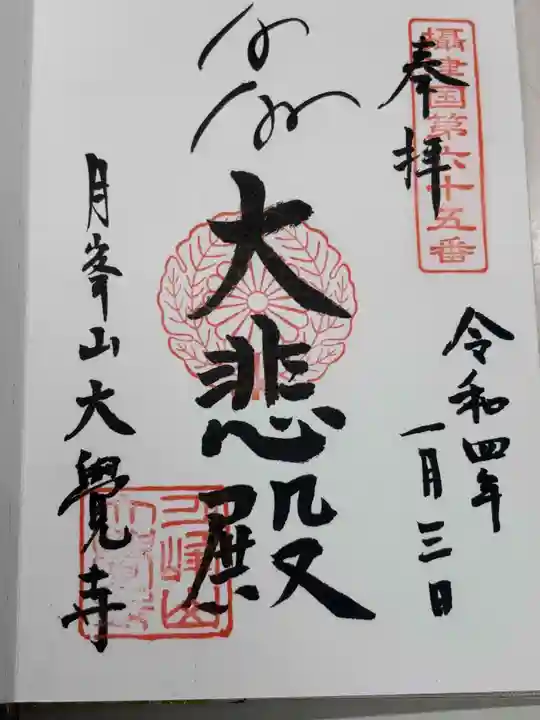 攝津国第六十五番
奉拝
令和四年
一月三日
大悲殿
月峯山大覺寺